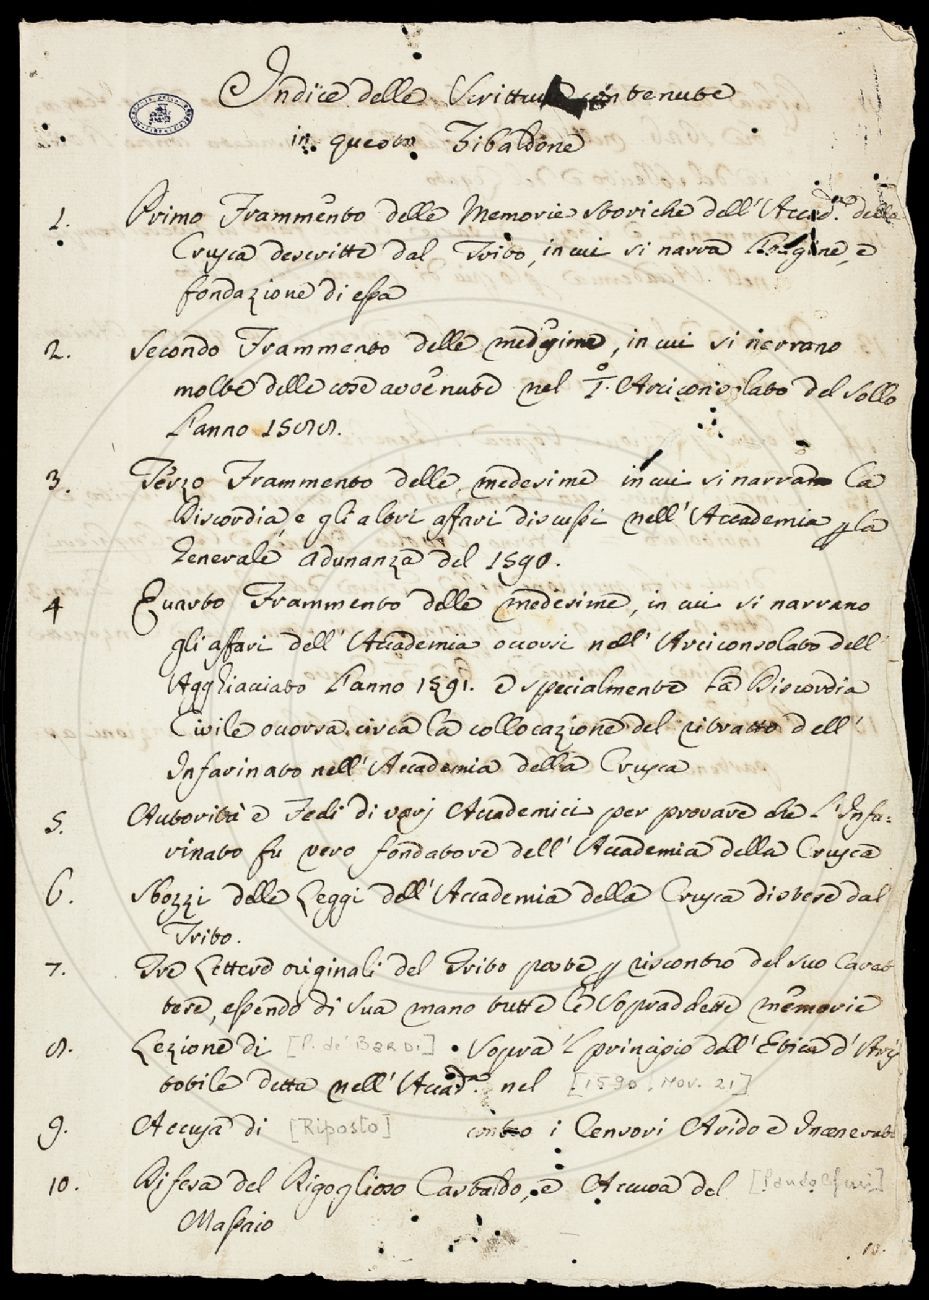 Indice delle Scritture contenute
in questo Zibaldone
1. Primo Frammento delle Memorie storiche dell'Accad.ª della
Crusca descritte dal Trito, in cui si narra l'origine, e
fondazione di essa
2. Secondo Frammento delle medesime, in cui si narrano
molte delle cose avvenute nel I.º Arciconsolato del Sollo
l'anno 1588.
3. Terzo Frammento delle medesime in cui si narrano la
Discordia, e gli altri affari discussi nell'Accademia p la
Generale adunanza del 1590.
4 Quarto Frammento delle medesime, in cui si narrano
gli affari dell'Accademia occorsi nell'Arciconsolato dell'
Agghiacciato l'anno 1591. e specialmente la Discordia
Civile occorsa circa la collocazione del ritratto dell'
Infarinato nell'Accademia della Crusca
5. Autorità e Fedi di varj Accademici per provare che l'Infa=
rinato fu vero fondatore dell'Accademia della Crusca
6. Sbozzi delle Leggi dell'Accademia della Crusca distese dal
Trito.
7. Tre Lettere originali del Trito poste p riscontro del suo Carat
tere, essendo di sua mano tutte le sopraddette memorie
8. Lezione di [P. de' BARDI] sopra 'l principio dell'Etica d'Aris
totile detta nell'Accad.ª nel [1590, Nov. 21]
9. Accusa di [Riposto] contro i Censori Arido e Incenerato
10. Difesa del Rigoglioso Castaldo, e Accusa del [Pandolfini]
Massaio